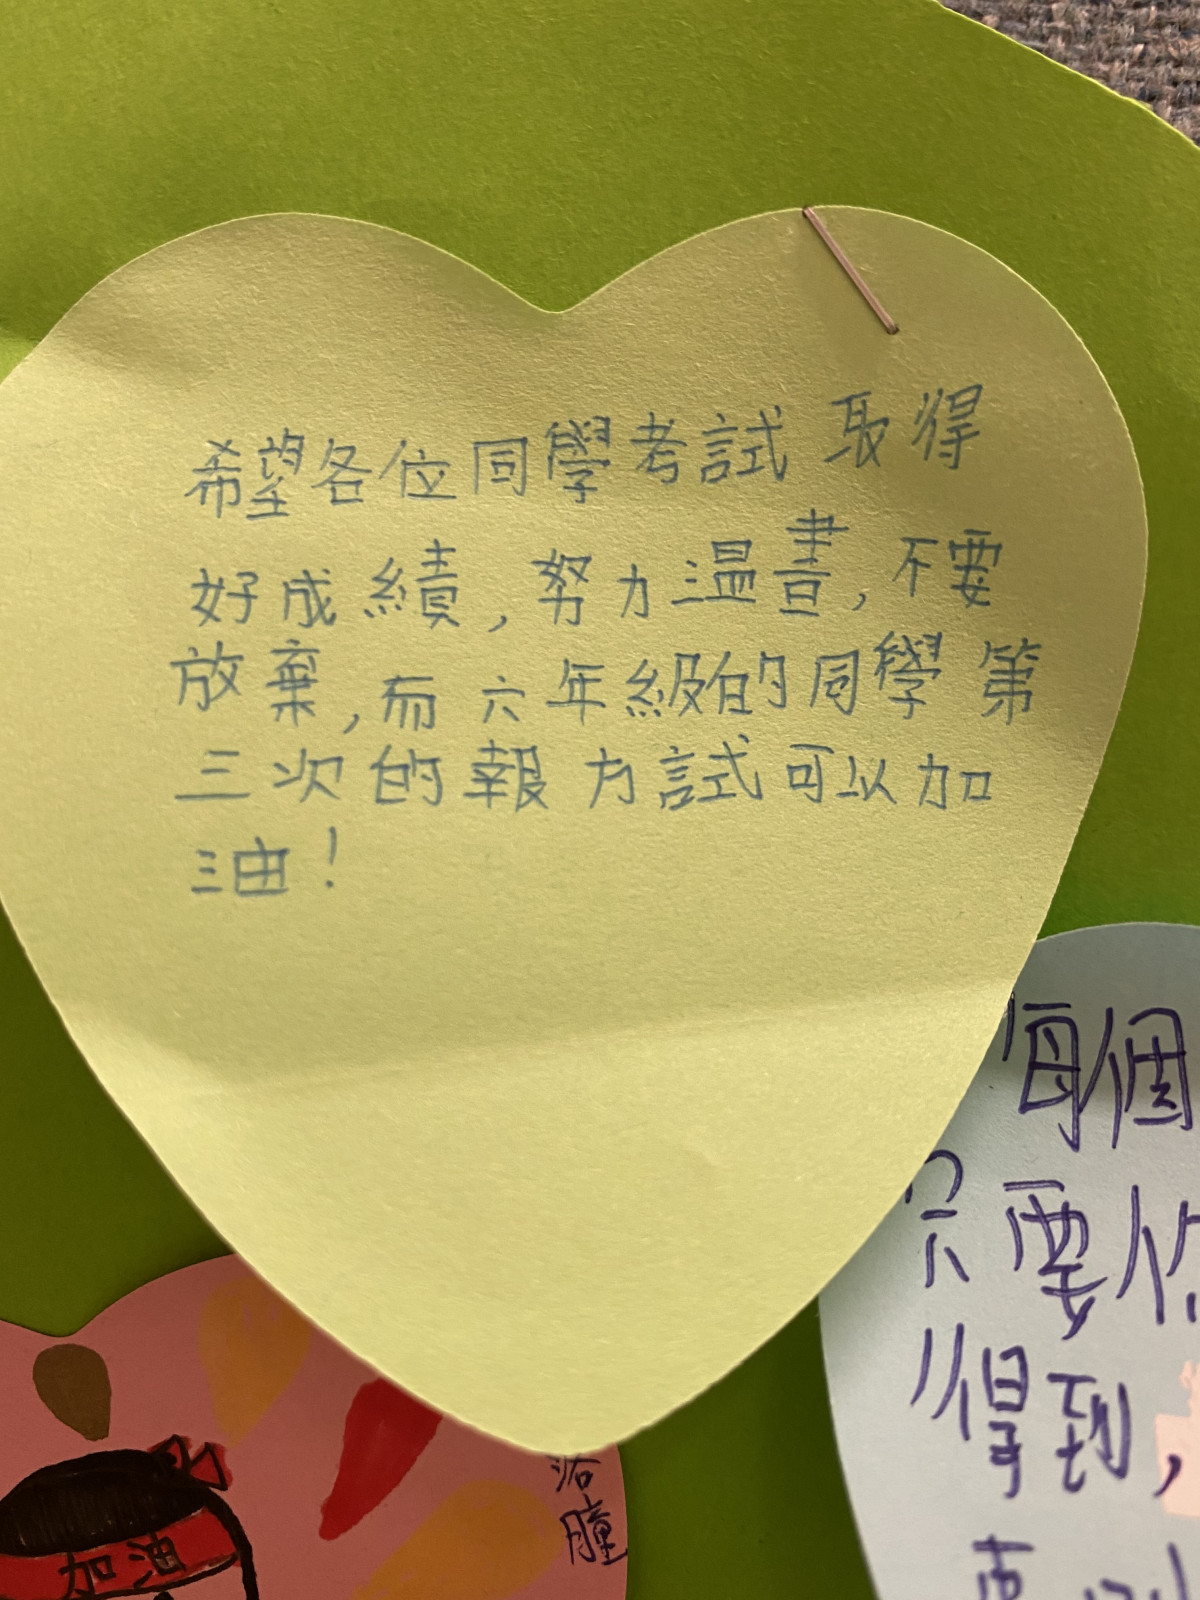 希望各位同學考試取得
好成績,努力溫書,不要
放棄,而六年級的同學第
三次的報方試可以加
油!
每個
只要你
得到,
加油